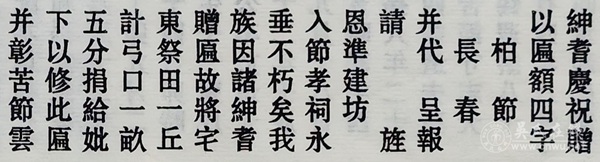 紳耆慶祝贈
以匾額四字
柏節
長春
并代 呈報
請 旌
恩準建坊
入節孝祠永
垂不朽矣我
族因諸紳耆
贈匾故將宅
東祭田一丘
計弓口一畝
五分捐給妣
下以修此匾
并彰苦節雲